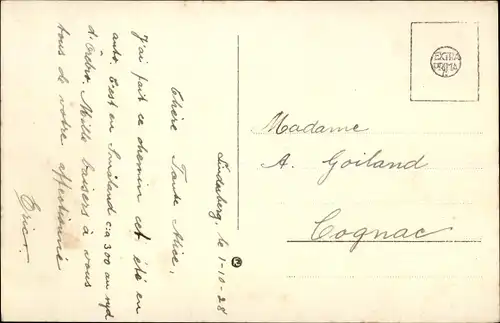 Linderberg, le 1-10-28
Chère Tante Alice,
J'ai fait ce chemin cet été en
auto. C'est en Småland c:a 300 au syd
d'Örebro. Mille baisers à vous
tous de votre affectionné
Eric.
EXTRA
PRIMA
Madame
A. Goiland
Cognac